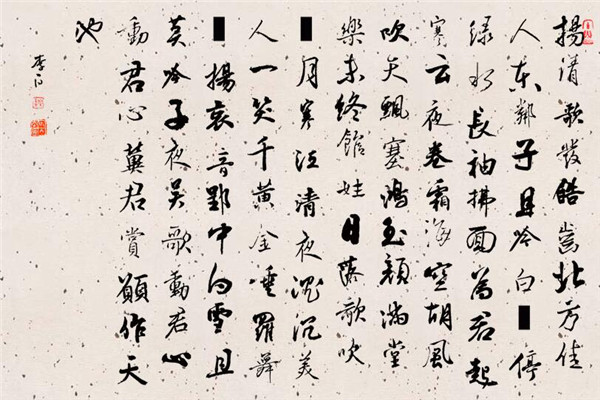 揚清歌發皓齒北方佳
人東鄰子且吟白停
綠水長袖拂面為君起
寒云夜卷霜海空胡風
吹天飄塞鴻玉顏滿堂
樂未終館娃日落歌吹
月寒江清夜沉沉美
人一笑千黃金垂羅舞
揚哀音郢中白雪且
莫吟子夜吳歌動君心
動君心冀君賞願作天
池
李白